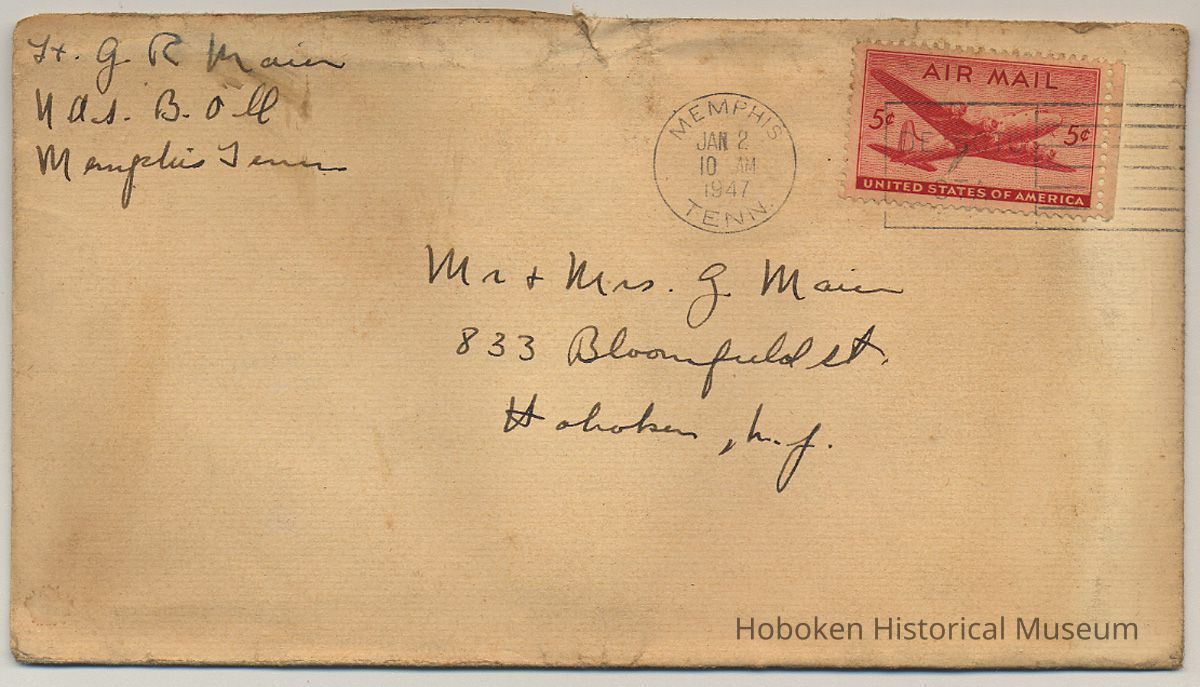 Lt. G R Maier
N A S. B. O Q
Memphis Tenn
MEMPHIS
JAN 2
10 AM
1947
TENN.
AIR MAIL
5¢ 5¢
UNITED STATES OF AMERICA
Mr + Mrs. G Maier
833 Bloomfield st.
Hoboken, N. J.
Hoboken Historical Museum